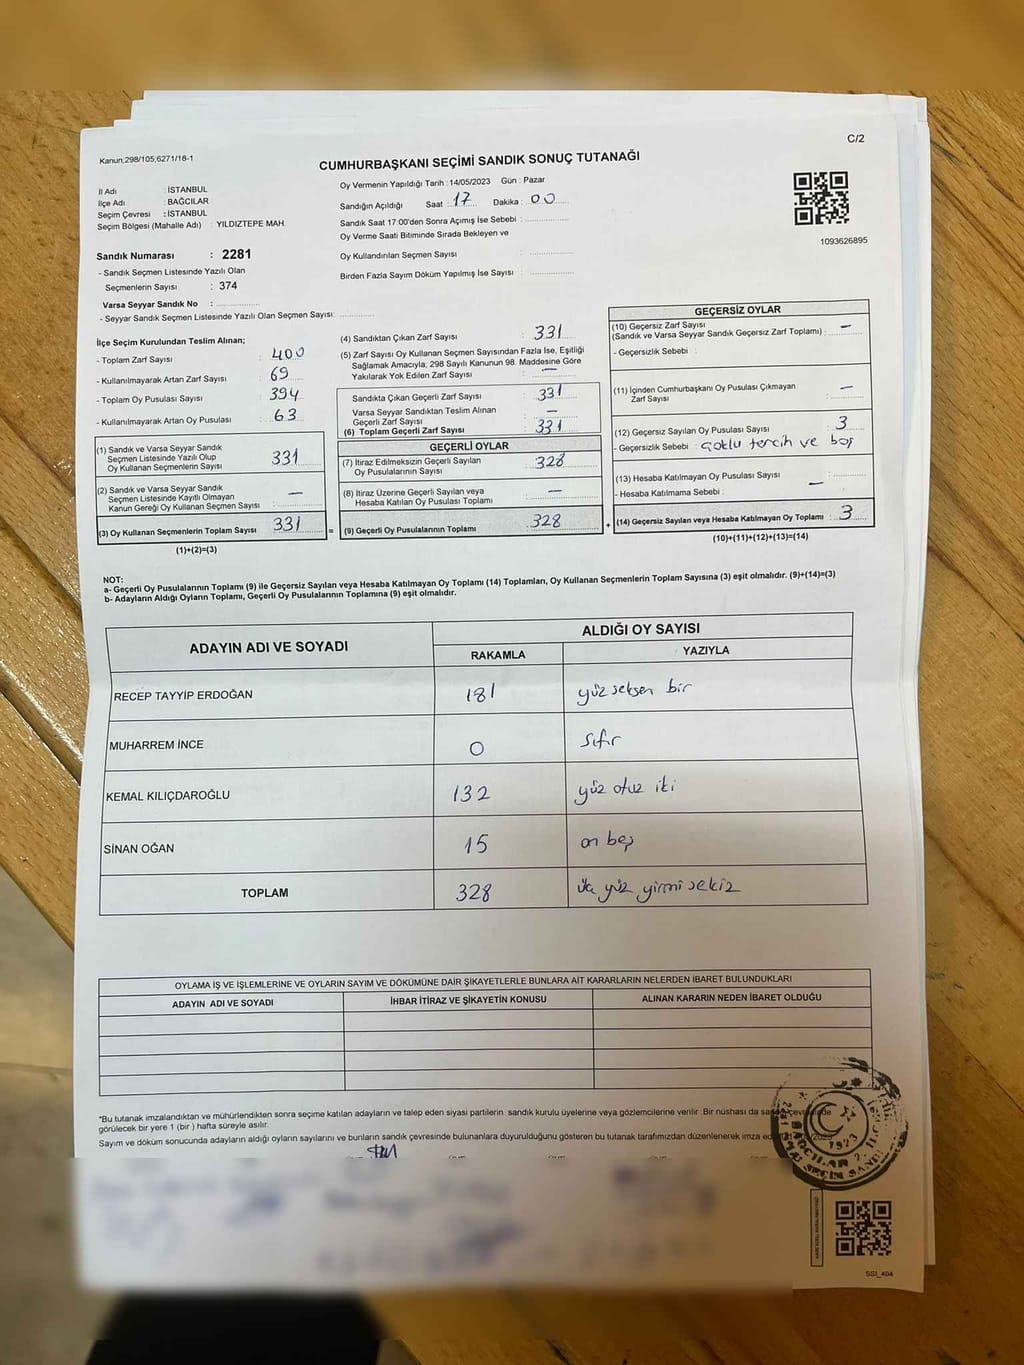 C/2
Kanun;298/105,6271/18-1
CUMHURBAŞKANI SEÇİMİ SANDIK SONUÇ TUTANAĞI
İl Adı : İSTANBUL
İlçe Adı : BAĞCILAR
Seçim Çevresi : İSTANBUL
Seçim Bölgesi (Mahalle Adı) : YILDIZTEPE MAH.
Oy Vermenin Yapıldığı Tarih : 14/05/2023 Gün : Pazar
Sandığın Açıldığı Saat : 17 Dakika : 00
Sandık Saat 17:00'den Sonra Açımış İse Sebebi :
Oy Verme Saati Bitiminde Sırada Bekleyen ve
Oy Kullandırılan Seçmen Sayısı :
Birden Fazla Sayım Döküm Yapılmış İse Sayısı :
1093626895
Sandık Numarası : 2281
- Sandık Seçmen Listesinde Yazılı Olan
Seçmenlerin Sayısı : 374
Varsa Seyyar Sandık No :
- Seyyar Sandık Seçmen Listesinde Yazılı Olan Seçmen Sayısı:
İlçe Seçim Kurulundan Teslim Alınan;
- Toplam Zarf Sayısı : 400
- Kullanılmayarak Artan Zarf Sayısı : 69
- Toplam Oy Pusulası Sayısı : 394
- Kullanılmayarak Artan Oy Pusulası : 63
(1) Sandık ve Varsa Seyyar Sandık
Seçmen Listesinde Yazılı Olup
Oy Kullanan Seçmenlerin Sayısı 331
(2) Sandık ve Varsa Seyyar Sandık
Seçmen Listesinde Kayıtlı Olmayan
Kanun Gereği Oy Kullanan Seçmen Sayısı : —
(3) Oy Kullanan Seçmenlerin Toplam Sayısı 331 =
(1)+(2)=(3)
(4) Sandıktan Çıkan Zarf Sayısı : 331
(5) Zarf Sayısı Oy Kullanan Seçmen Sayısından Fazla İse, Eşitliği
Sağlamak Amacıyla; 298 Sayılı Kanunun 98. Maddesine Göre
Yakılarak Yok Edilen Zarf Sayısı : —
Sandıkta Çıkan Geçerli Zarf Sayısı : 331
Varsa Seyyar Sandıktan Teslim Alınan
Geçerli Zarf Sayısı : —
(6) Toplam Geçerli Zarf Sayısı : 331
GEÇERLİ OYLAR
(7) İtiraz Edilmeksizin Geçerli Sayılan
Oy Pusulalarının Sayısı : 328
(8) İtiraz Üzerine Geçerli Sayılan veya
Hesaba Katılan Oy Pusulası Toplamı : —
(9) Geçerli Oy Pusulalarının Toplamı : 328 +
GEÇERSİZ OYLAR
(10) Geçersiz Zarf Sayısı
(Sandık ve Varsa Seyyar Sandık Geçersiz Zarf Toplamı) : —
- Geçersizlik Sebebi :
(11) İçinden Cumhurbaşkanı Oy Pusulası Çıkmayan
Zarf Sayısı : —
(12) Geçersiz Sayılan Oy Pusulası Sayısı : 3
- Geçersizlik Sebebi : çoklu tercih ve boş
(13) Hesaba Katılmayan Oy Pusulası Sayısı : —
- Hesaba Katılmama Sebebi :
(14) Geçersiz Sayılan veya Hesaba Katılmayan Oy Toplamı : 3
(10)+(11)+(12)+(13)=(14)
NOT:
a- Geçerli Oy Pusulalarının Toplamı (9) ile Geçersiz Sayılan veya Hesaba Katılmayan Oy Toplamı (14) Toplamları, Oy Kullanan Seçmenlerin Toplam Sayısına (3) eşit olmalıdır. (9)+(14)=(3)
b- Adayların Aldığı Oyların Toplamı, Geçerli Oy Pusulalarının Toplamına (9) eşit olmalıdır.
ADAYIN ADI VE SOYADI ALDIĞI OY SAYISI
RAKAMLA YAZIYLA
RECEP TAYYİP ERDOĞAN 181 yüz seksen bir
MUHARREM İNCE 0 sıfır
KEMAL KILIÇDAROĞLU 132 yüz otuz iki
SİNAN OĞAN 15 on beş
TOPLAM 328 üç yüz yirmi sekiz
OYLAMA İŞ VE İŞLEMLERİNE VE OYLARIN SAYIM VE DÖKÜMÜNE DAİR ŞİKAYETLERLE BUNLARA AİT KARARLARIN NELERDEN İBARET BULUNDUKLARI
ADAYIN ADI VE SOYADI İHBAR İTİRAZ VE ŞİKAYETİN KONUSU ALINAN KARARIN NEDEN İBARET OLDUĞU
*Bu tutanak imzalandıktan ve mühürlendikten sonra seçime katılan adayların ve talep eden siyasi partilerin sandık kurulu üyelerine veya gözlemcilerine verilir. Bir nüshası da
görülecek bir yere 1 (bir) hafta süreyle asılır.
Sayım ve döküm sonucunda adayların aldığı oyların sayılarını ve bunların sandık çevresinde bulunanlara duyurulduğunu gösteren bu tutanak tarafımızdan düzenlenerek imza
1923
BAĞCILAR 2. İLÇE
SEÇİM SANDI
SSI_404